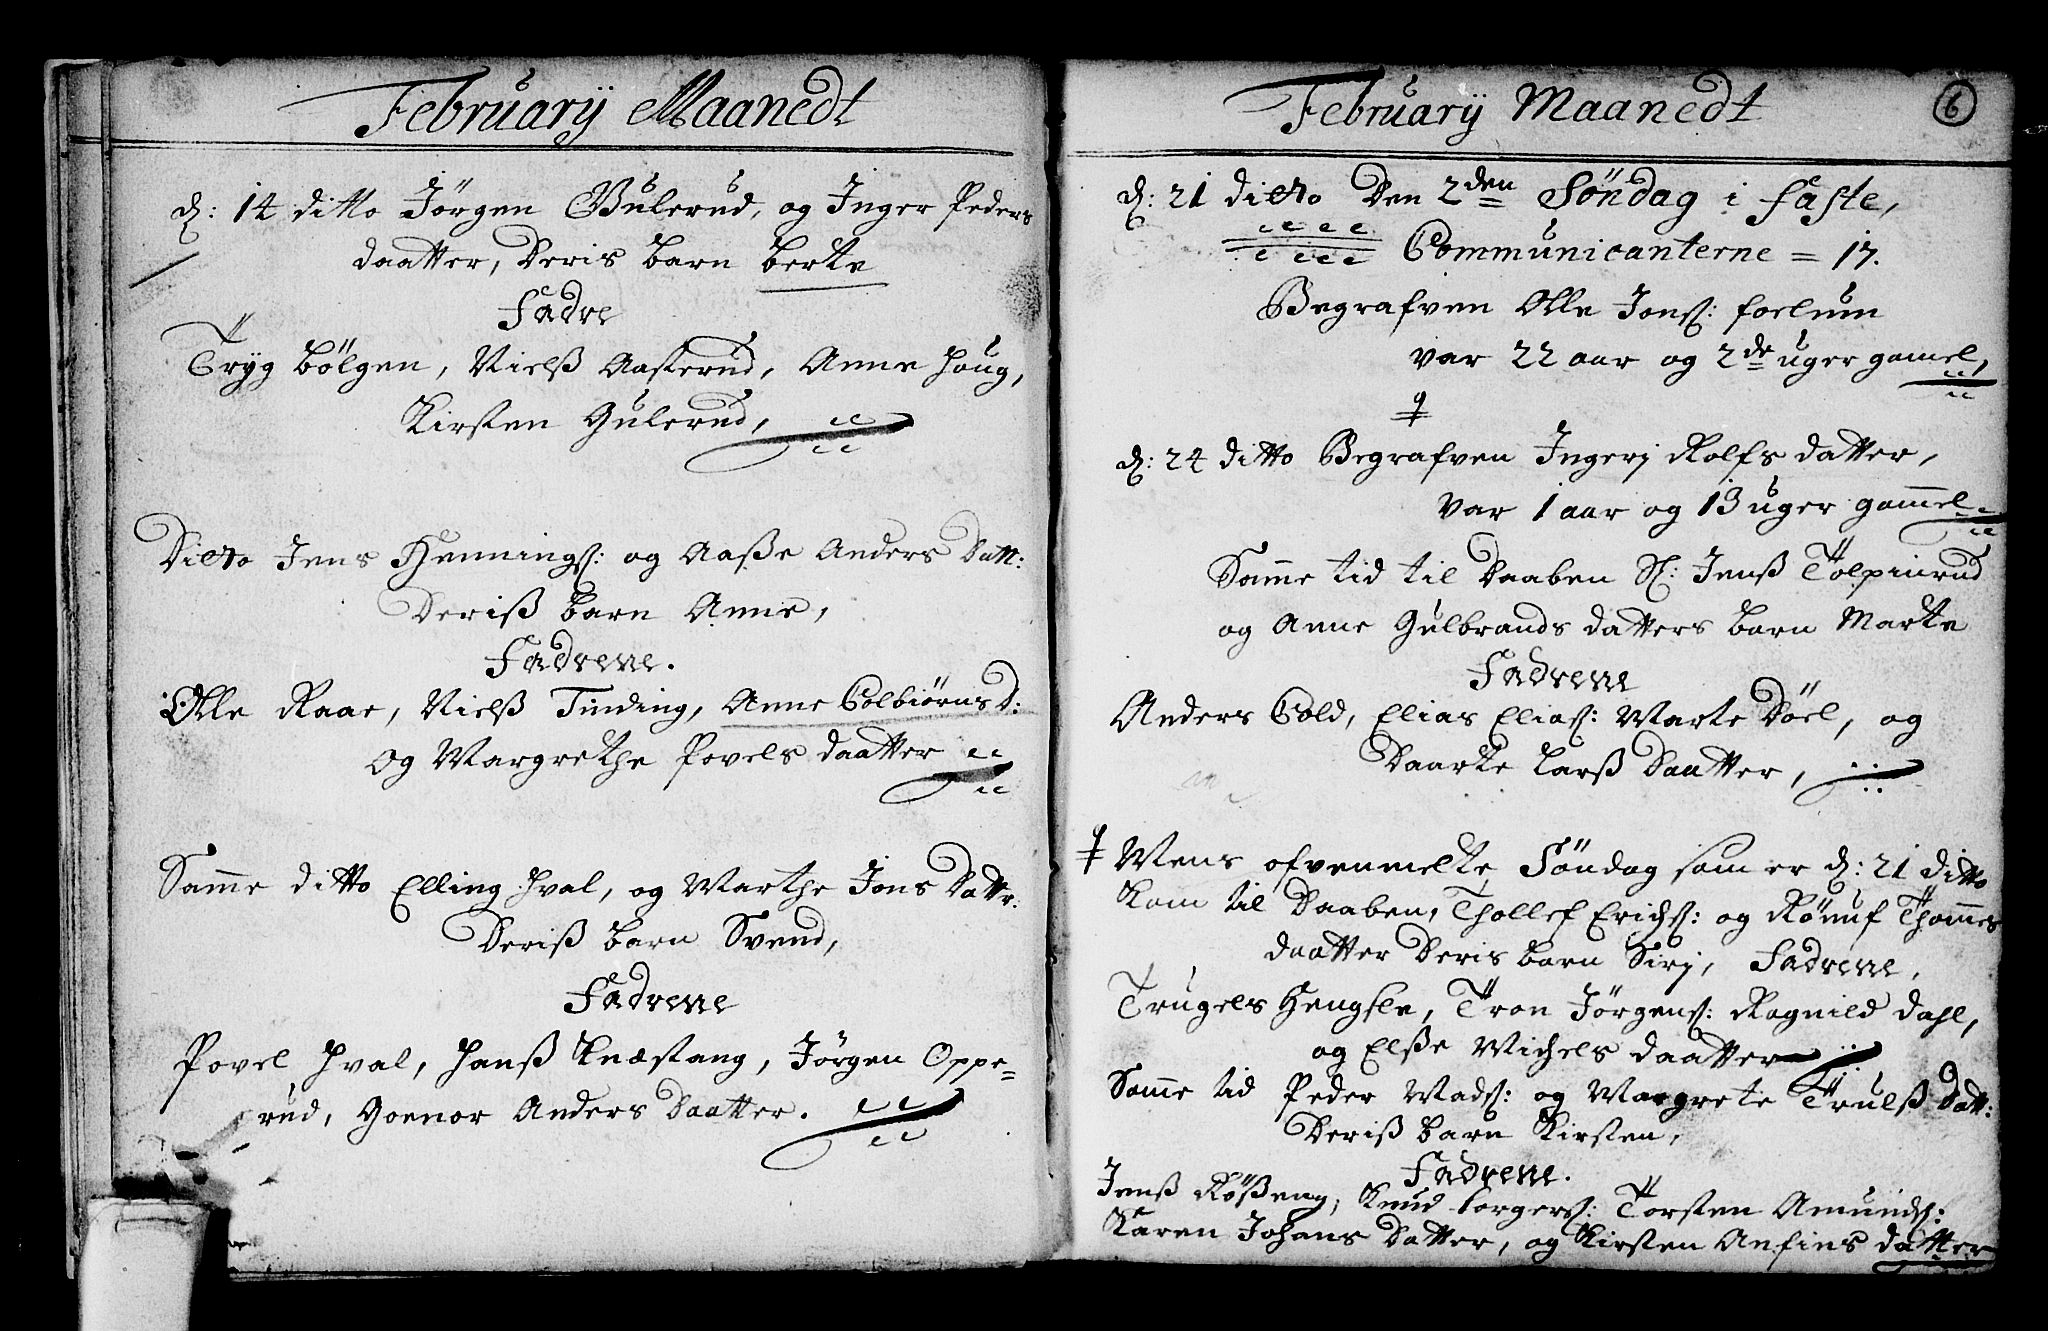 Februarij Maanedt
d: 14 ditto Jörgen Gulerud, og Inger Peders
daatter, Deris barn berte
Fadre
Tryg bölgen, Nielß Aasterud, Anne Houg,
Kirsten Gulerud,
Ditto Jens Hennings: og Aaße Anders Datt:
Deriß barn Anne,
Fadrene.
Olle Raae, Nielß Tinding, Anne Colbiörns D:
og Margrethe Povels daatter
Samme ditto Elling Hval, og Marthe Jons Dattr:
Deriß barn Svend,
Fadrene
Povel Hval, Hanß Knæstang, Jörgen Oppe=
rud, Goenor Anders Daatter.
Februarij Maanedt
6
d: 21 ditto Den 2den Söndag i faste,
Communicanterne = 17.
Begrafven Olle Jons:
var 22 aar og 2de uger gamel,
d: 24 ditto Begrafven Ingerj Rolfs datter,
var 1 aar og 13 uger gammel
Samme tid til Daaben Sl: Jenß Tolpinrud
og Anne Gulbrands datters barn Marte
Fadrene
Anders Gold, Elias Elias: Marte Döel, og
Daarte Larß Daatter,
Mens ofvenmelte Söndag som er d: 21 ditto
kom til Daaben, Thollef Erichs: og Rönnf Thommes
daatter Deris barn Sirj, Fadrene,
Trugels Hengsle, Tron Jörgens: Ragnild Dahl,
og Elße Michels daatter
Samme tid Peder Mads: og Margrete Trulß Datt:
Deriß barn Kirsten,
Fadrene.
Jenß Rößeng, Knud torgers: Torsten Amunds:
Karen Johans Datter, og Kirsten Anfins datter